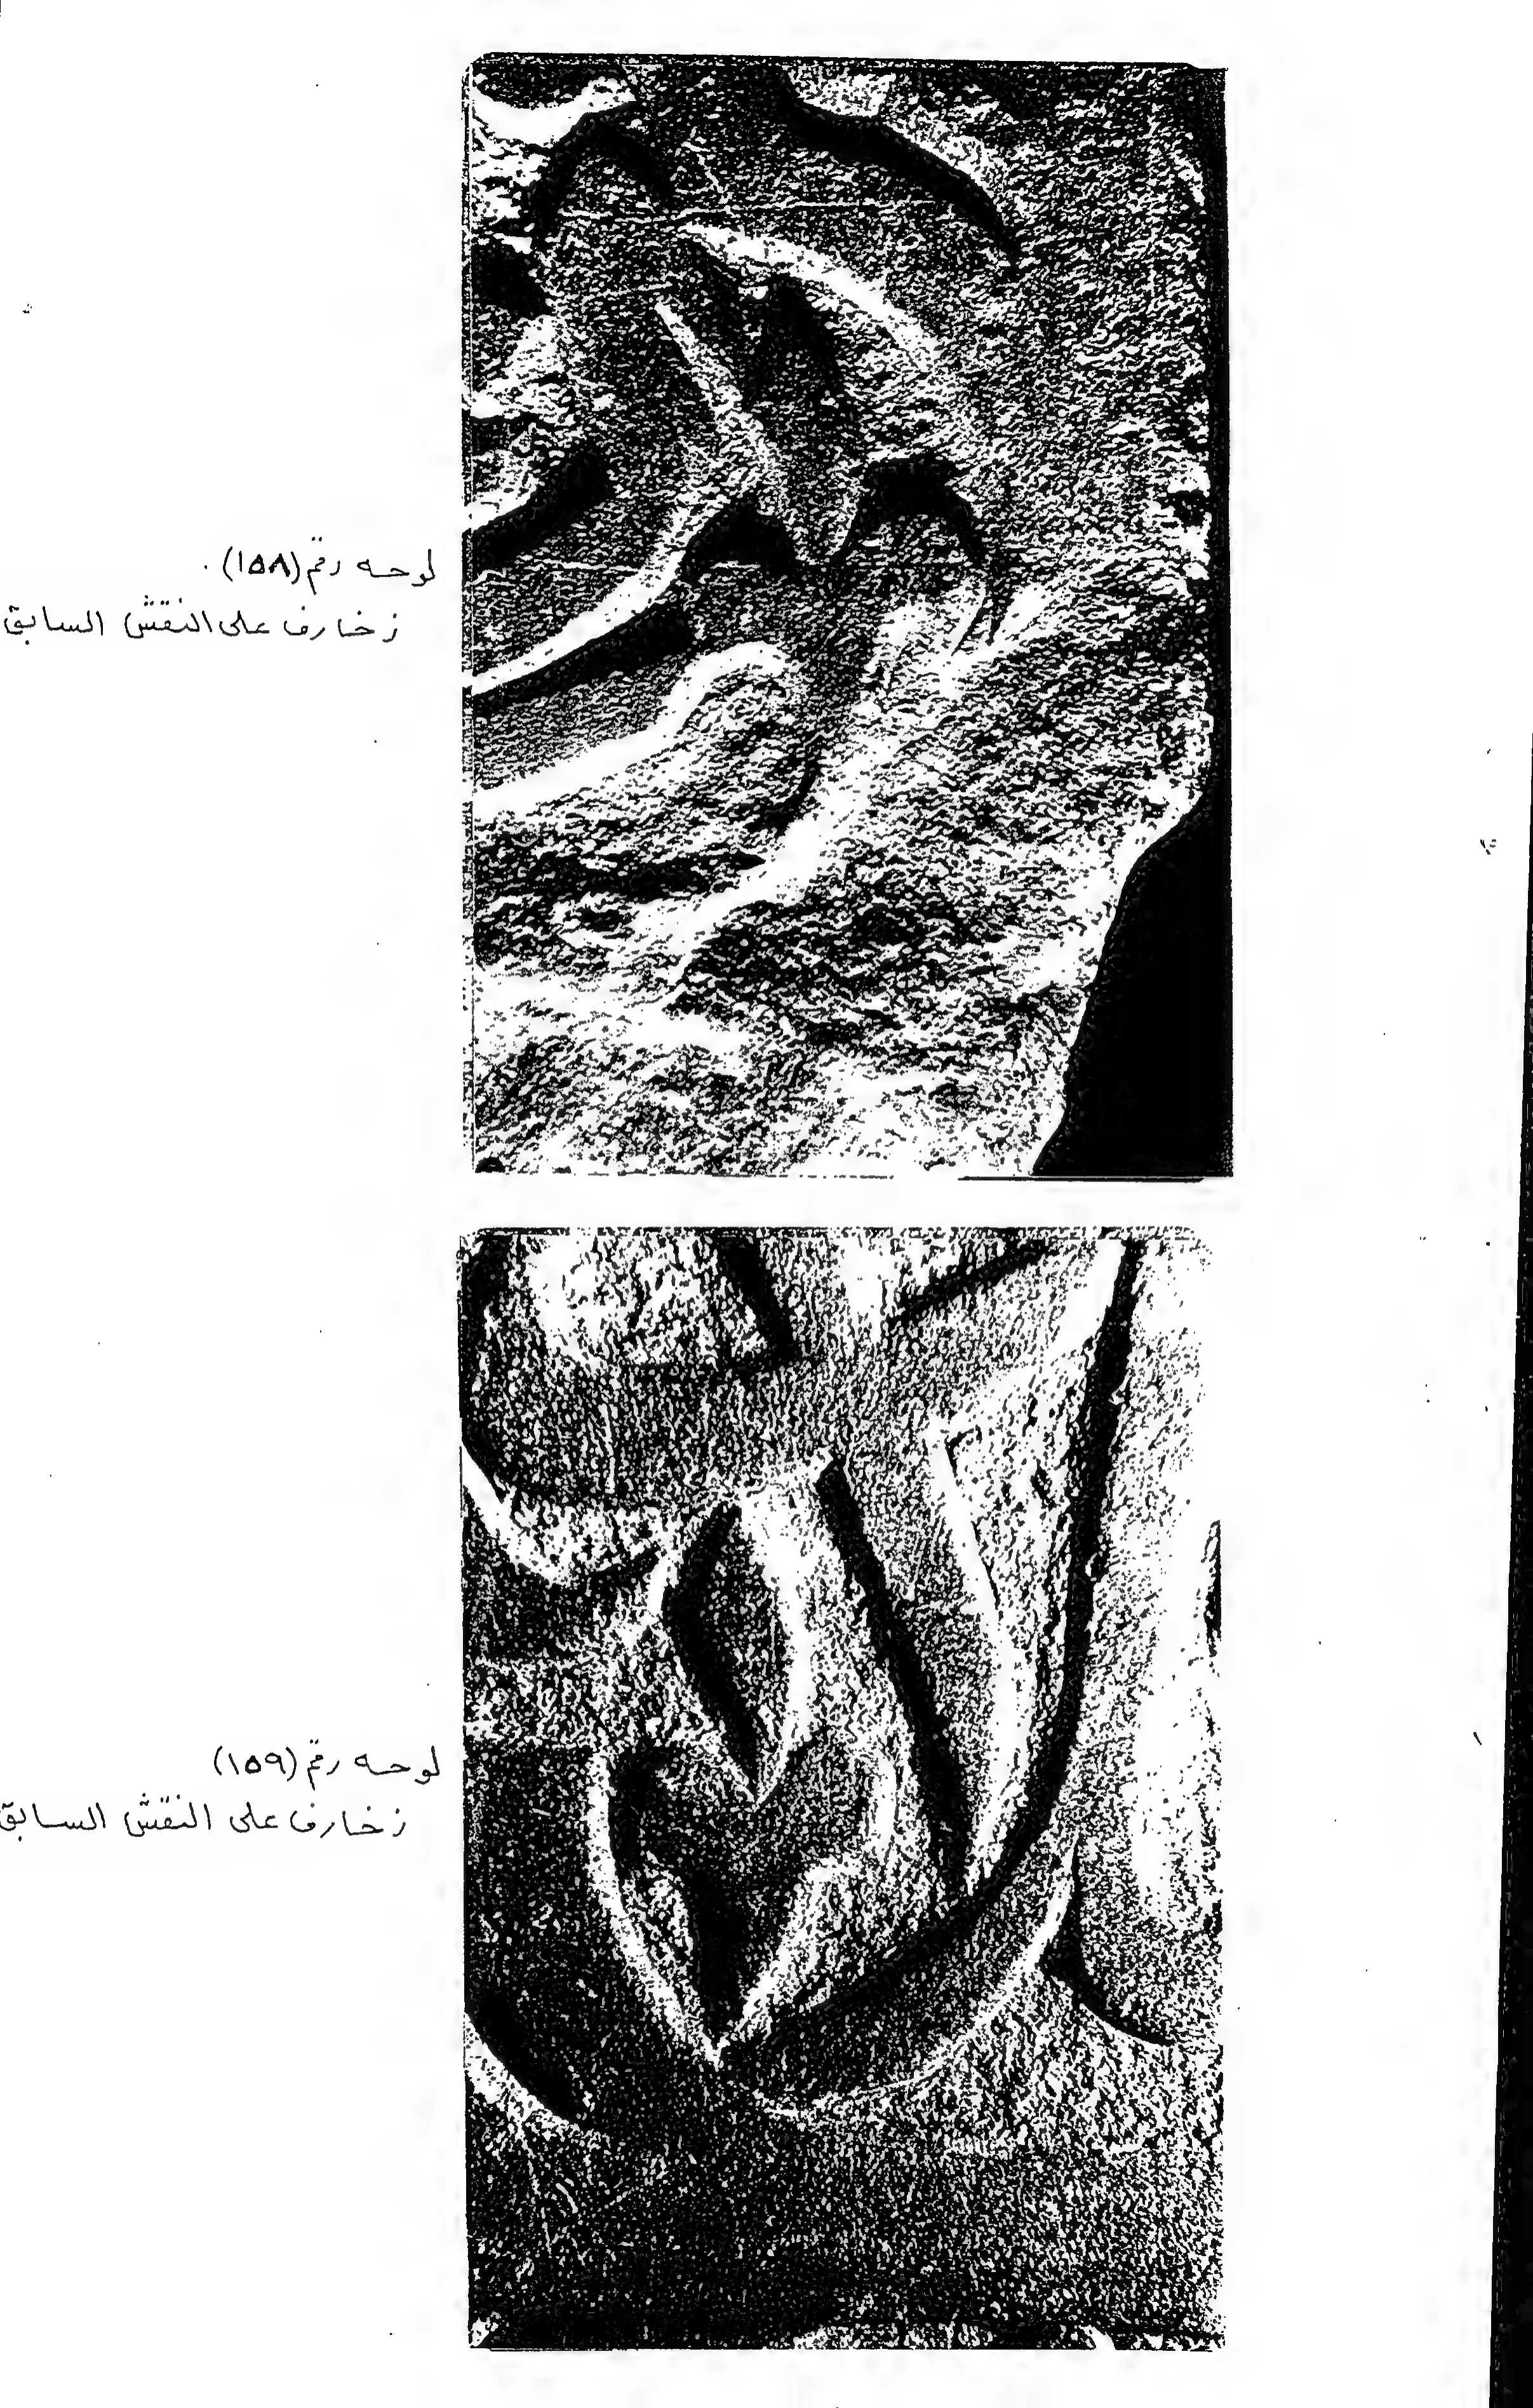 لوحه رقم (١٥٨)
زخارف على النقش السابق
لوحه رقم (١٥٩)
زخارف على النقش السابق